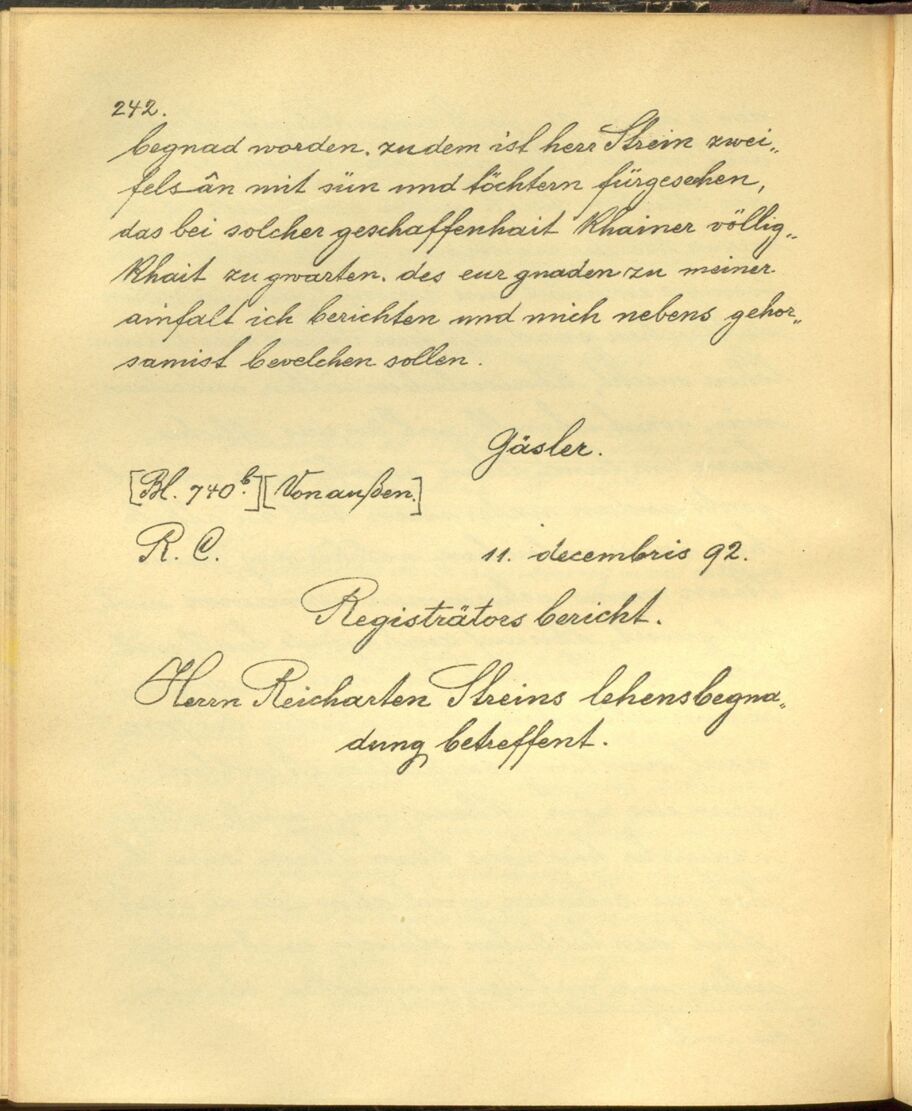 242.
begnad worden. zu dem ist herr Strein zwei„
fels ân mit sün und töchtern fürgesehen,
das bei solcher geschaffenhait khainer völlig„
khait zu gwarten. des eur gnaden zu meiner
ainfalt ich berichten und mich nebens gehor„
samist bevelchen sollen.
Gäsler.
[Bl. 740b.] [Von außen.]
R. C. 11. decembris 92.
Registrätors bericht.
Herrn Reicharten Streins lehensbegna„
dung betreffent.